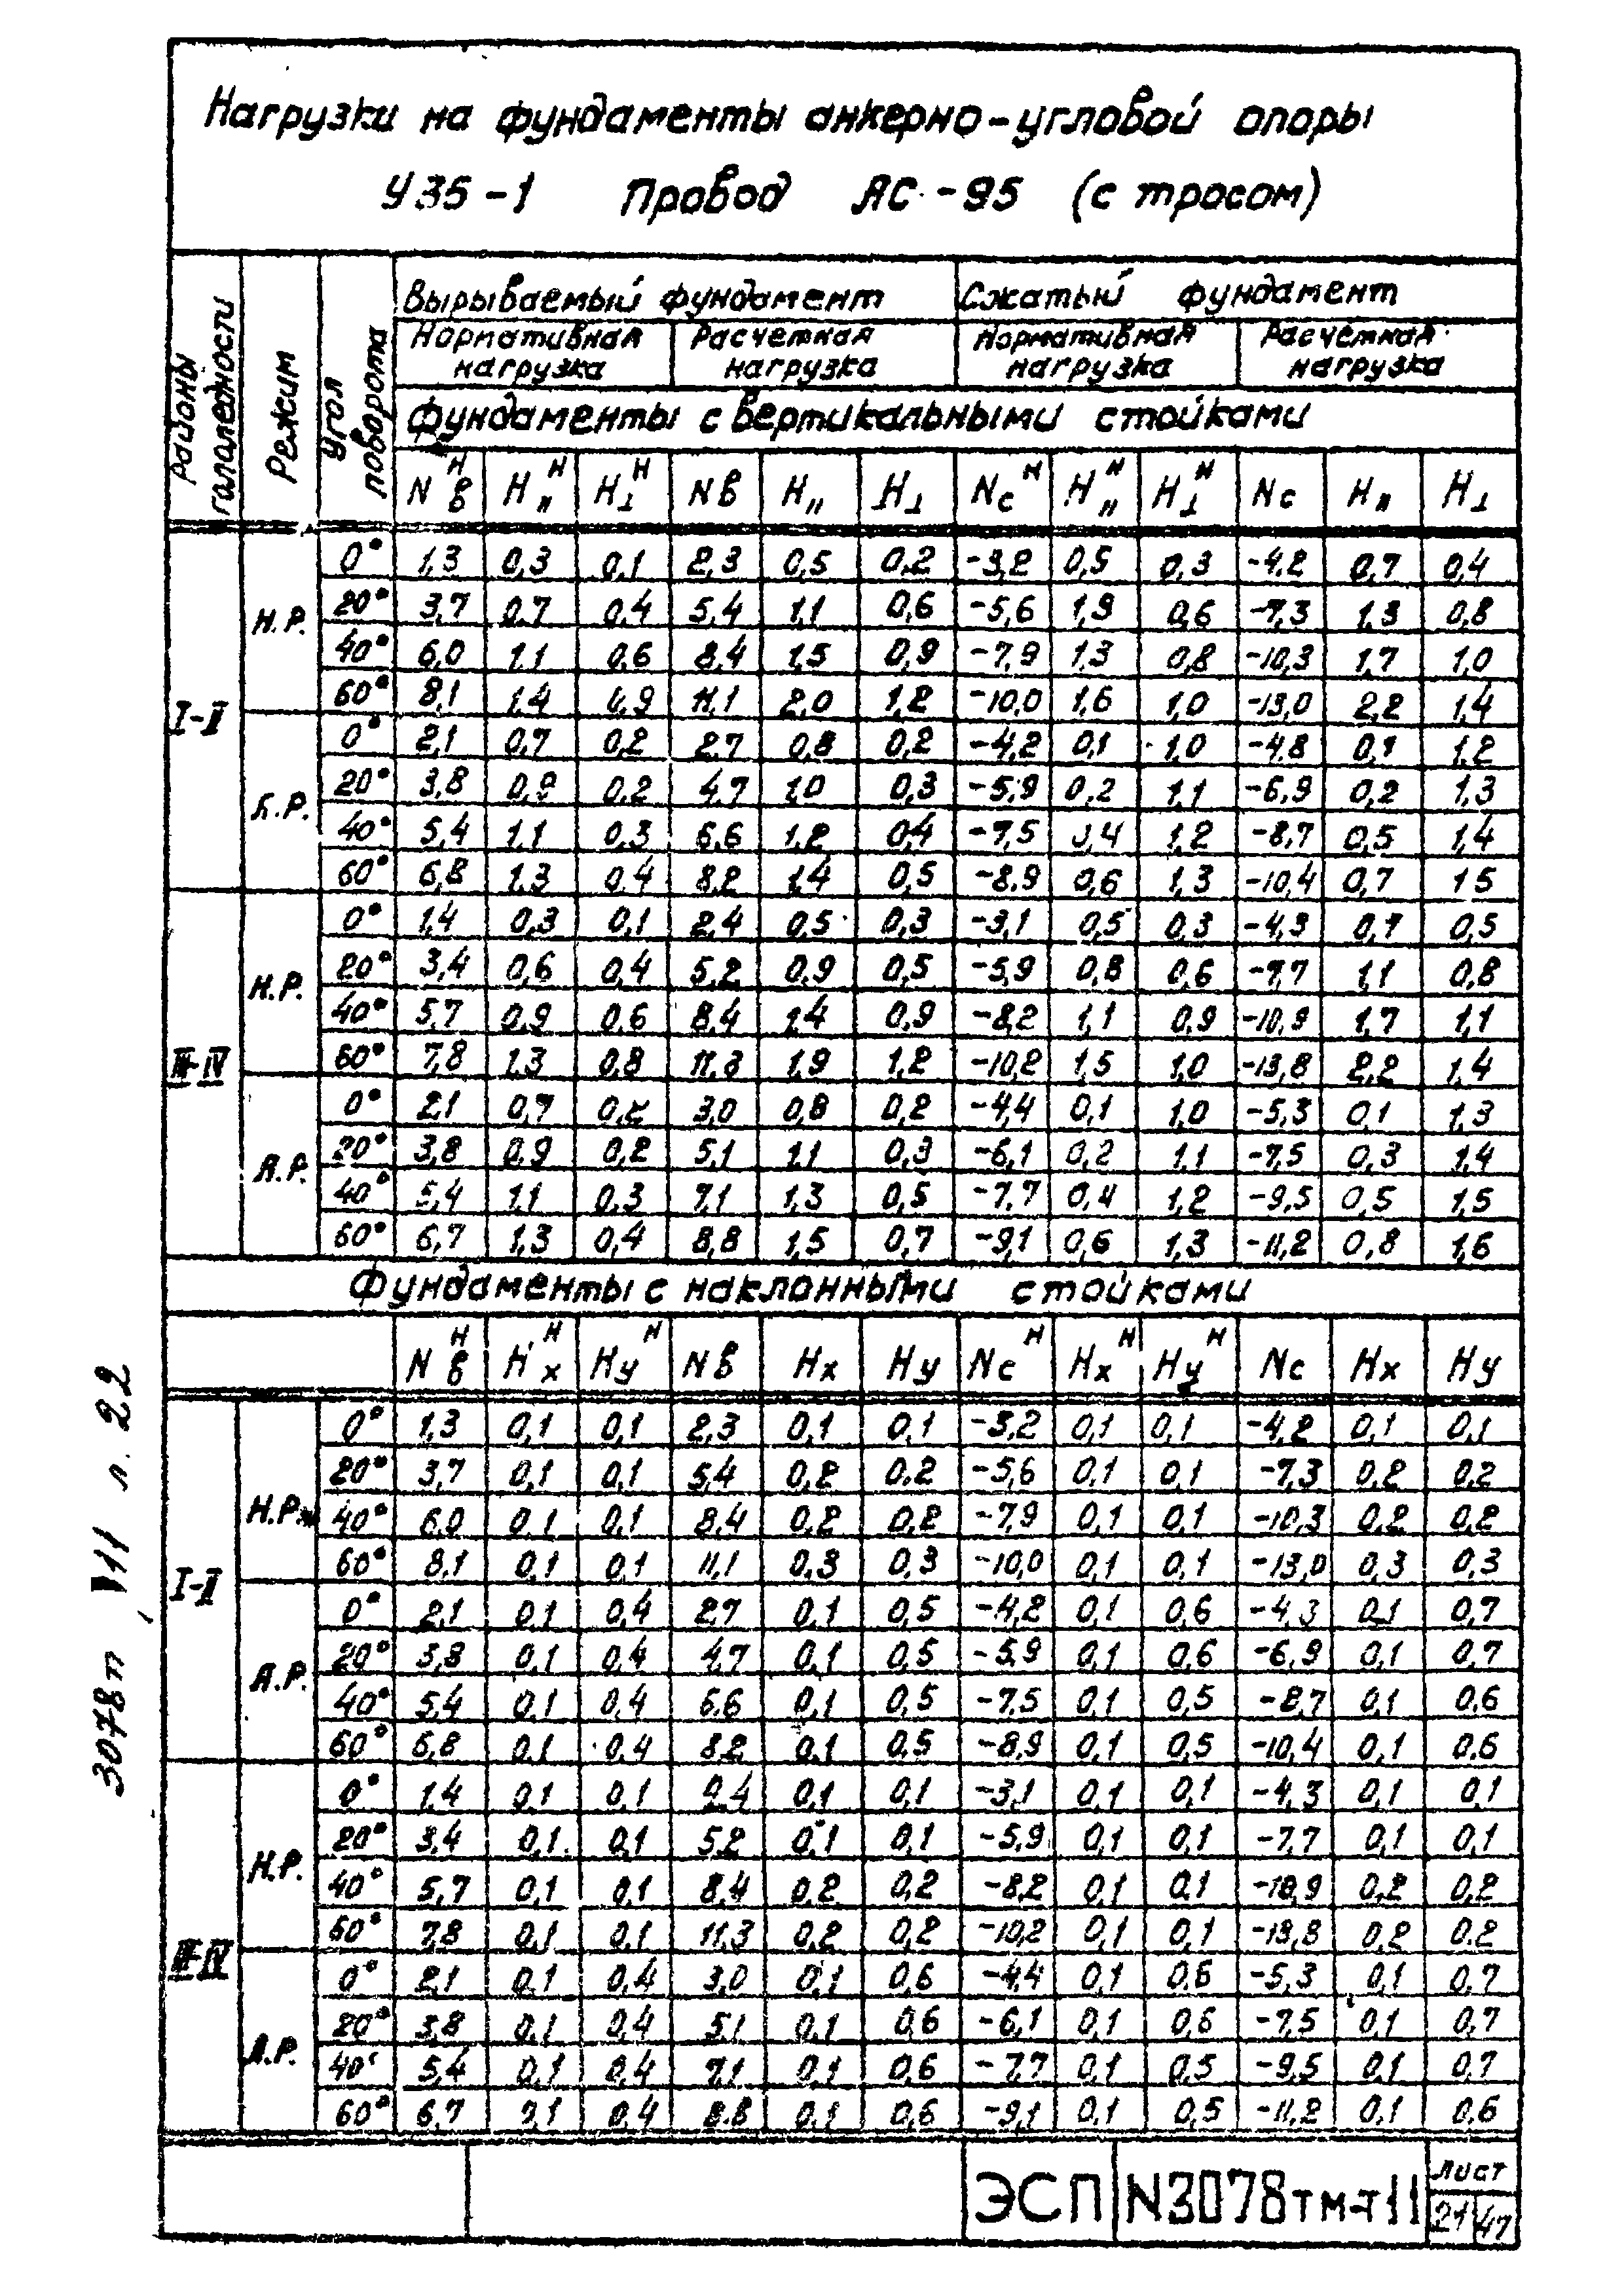 Нагрузки на фундаменты анкерно-угловой опоры
У35-1 Провод АС-95 (с тросом)
Районы гололедности Режим Угол поворота
Вырываемый фундамент Сжатый фундамент
Нормативная нагрузка Расчетная нагрузка Нормативная нагрузка Расчётная нагрузка
Фундаменты с вертикальными стойками
Nвᴴ H״ᴴ H⊥ᴴ Nв H״ H⊥ Ncᴴ H״ᴴ H⊥ᴴ Nc H״ H⊥
I-II
Н.Р.
0° 1,3 0,3 0,1 2,3 0,5 0,2 -3,2 0,5 0,3 -4,2 0,7 0,4
20° 3,7 0,7 0,4 5,4 1,1 0,6 -5,6 1,9 0,6 -7,3 1,3 0,8
40° 6,0 1,1 0,6 8,4 1,5 0,9 -7,9 1,3 0,8 -10,3 1,7 1,0
60° 8,1 1,4 0,9 11,1 2,0 1,2 -10,0 1,6 1,0 -13,0 2,2 1,4
А.Р.
0° 2,1 0,7 0,2 2,7 0,8 0,2 -4,2 0,1 1,0 -4,8 0,1 1,2
20° 3,8 0,9 0,2 4,7 1,0 0,3 -5,9 0,2 1,1 -6,9 0,2 1,3
40° 5,4 1,1 0,3 6,6 1,2 0,4 -7,5 0,4 1,2 -8,7 0,5 1,4
60° 6,8 1,3 0,4 8,2 1,4 0,5 -8,9 0,6 1,3 -10,4 0,7 1,5
III-IV
Н.Р.
0° 1,4 0,3 0,1 2,4 0,5 0,3 -3,1 0,5 0,3 -4,3 0,7 0,5
20° 3,4 0,6 0,4 5,2 0,9 0,5 -5,9 0,8 0,6 -7,7 1,1 0,8
40° 5,7 0,9 0,6 8,4 1,4 0,9 -8,2 1,1 0,9 -10,9 1,7 1,1
60° 7,8 1,3 0,8 11,3 1,9 1,2 -10,2 1,5 1,0 -13,8 2,2 1,4
А.Р.
0° 2,1 0,7 0,2 3,0 0,8 0,2 -4,4 0,1 1,0 -5,3 0,1 1,3
20° 3,8 0,9 0,2 5,1 1,1 0,3 -6,1 0,2 1,1 -7,5 0,3 1,4
40° 5,4 1,1 0,3 7,1 1,3 0,5 -7,7 0,4 1,2 -9,5 0,5 1,5
60° 6,7 1,3 0,4 8,8 1,5 0,7 -9,1 0,6 1,3 -11,2 0,8 1,6
Фундаменты с наклонными стойками
Nвᴴ Hxᴴ Hyᴴ Nв Hx Hy Ncᴴ Hxᴴ Hyᴴ Nc Hx Hy
I-II
Н.Р.
0° 1,3 0,1 0,1 2,3 0,1 0,1 -3,2 0,1 0,1 -4,2 0,1 0,1
20° 3,7 0,1 0,1 5,4 0,2 0,2 -5,6 0,1 0,1 -7,3 0,2 0,2
40° 6,0 0,1 0,1 8,4 0,2 0,2 -7,9 0,1 0,1 -10,3 0,2 0,2
60° 8,1 0,1 0,1 11,1 0,3 0,3 -10,0 0,1 0,1 -13,0 0,3 0,3
А.Р.
0° 2,1 0,1 0,4 2,7 0,1 0,5 -4,2 0,1 0,6 -4,3 0,1 0,7
20° 3,8 0,1 0,4 4,7 0,1 0,5 -5,9 0,1 0,6 -6,9 0,1 0,7
40° 5,4 0,1 0,4 6,6 0,1 0,5 -7,5 0,1 0,5 -8,7 0,1 0,6
60° 6,8 0,1 0,4 8,2 0,1 0,5 -8,9 0,1 0,5 -10,4 0,1 0,6
III-IV
Н.Р.
0° 1,4 0,1 0,1 2,4 0,1 0,1 -3,1 0,1 0,1 -4,3 0,1 0,1
20° 3,4 0,1 0,1 5,2 0,1 0,1 -5,9 0,1 0,1 -7,7 0,1 0,1
40° 5,7 0,1 0,1 8,4 0,2 0,2 -8,2 0,1 0,1 -10,9 0,2 0,2
60° 7,8 0,1 0,1 11,3 0,2 0,2 -10,2 0,1 0,1 -13,8 0,2 0,2
А.Р.
0° 2,1 0,1 0,4 3,0 0,1 0,6 -4,4 0,1 0,6 -5,3 0,1 0,7
20° 3,8 0,1 0,4 5,1 0,1 0,6 -6,1 0,1 0,6 -7,5 0,1 0,7
40° 5,4 0,1 0,4 7,1 0,1 0,6 -7,7 0,1 0,5 -9,5 0,1 0,7
60° 6,7 0,1 0,4 8,8 0,1 0,6 -9,1 0,1 0,5 -11,2 0,1 0,6
ЭСП N3078тм-т11 Лист 21 47
3078т VII л. 22